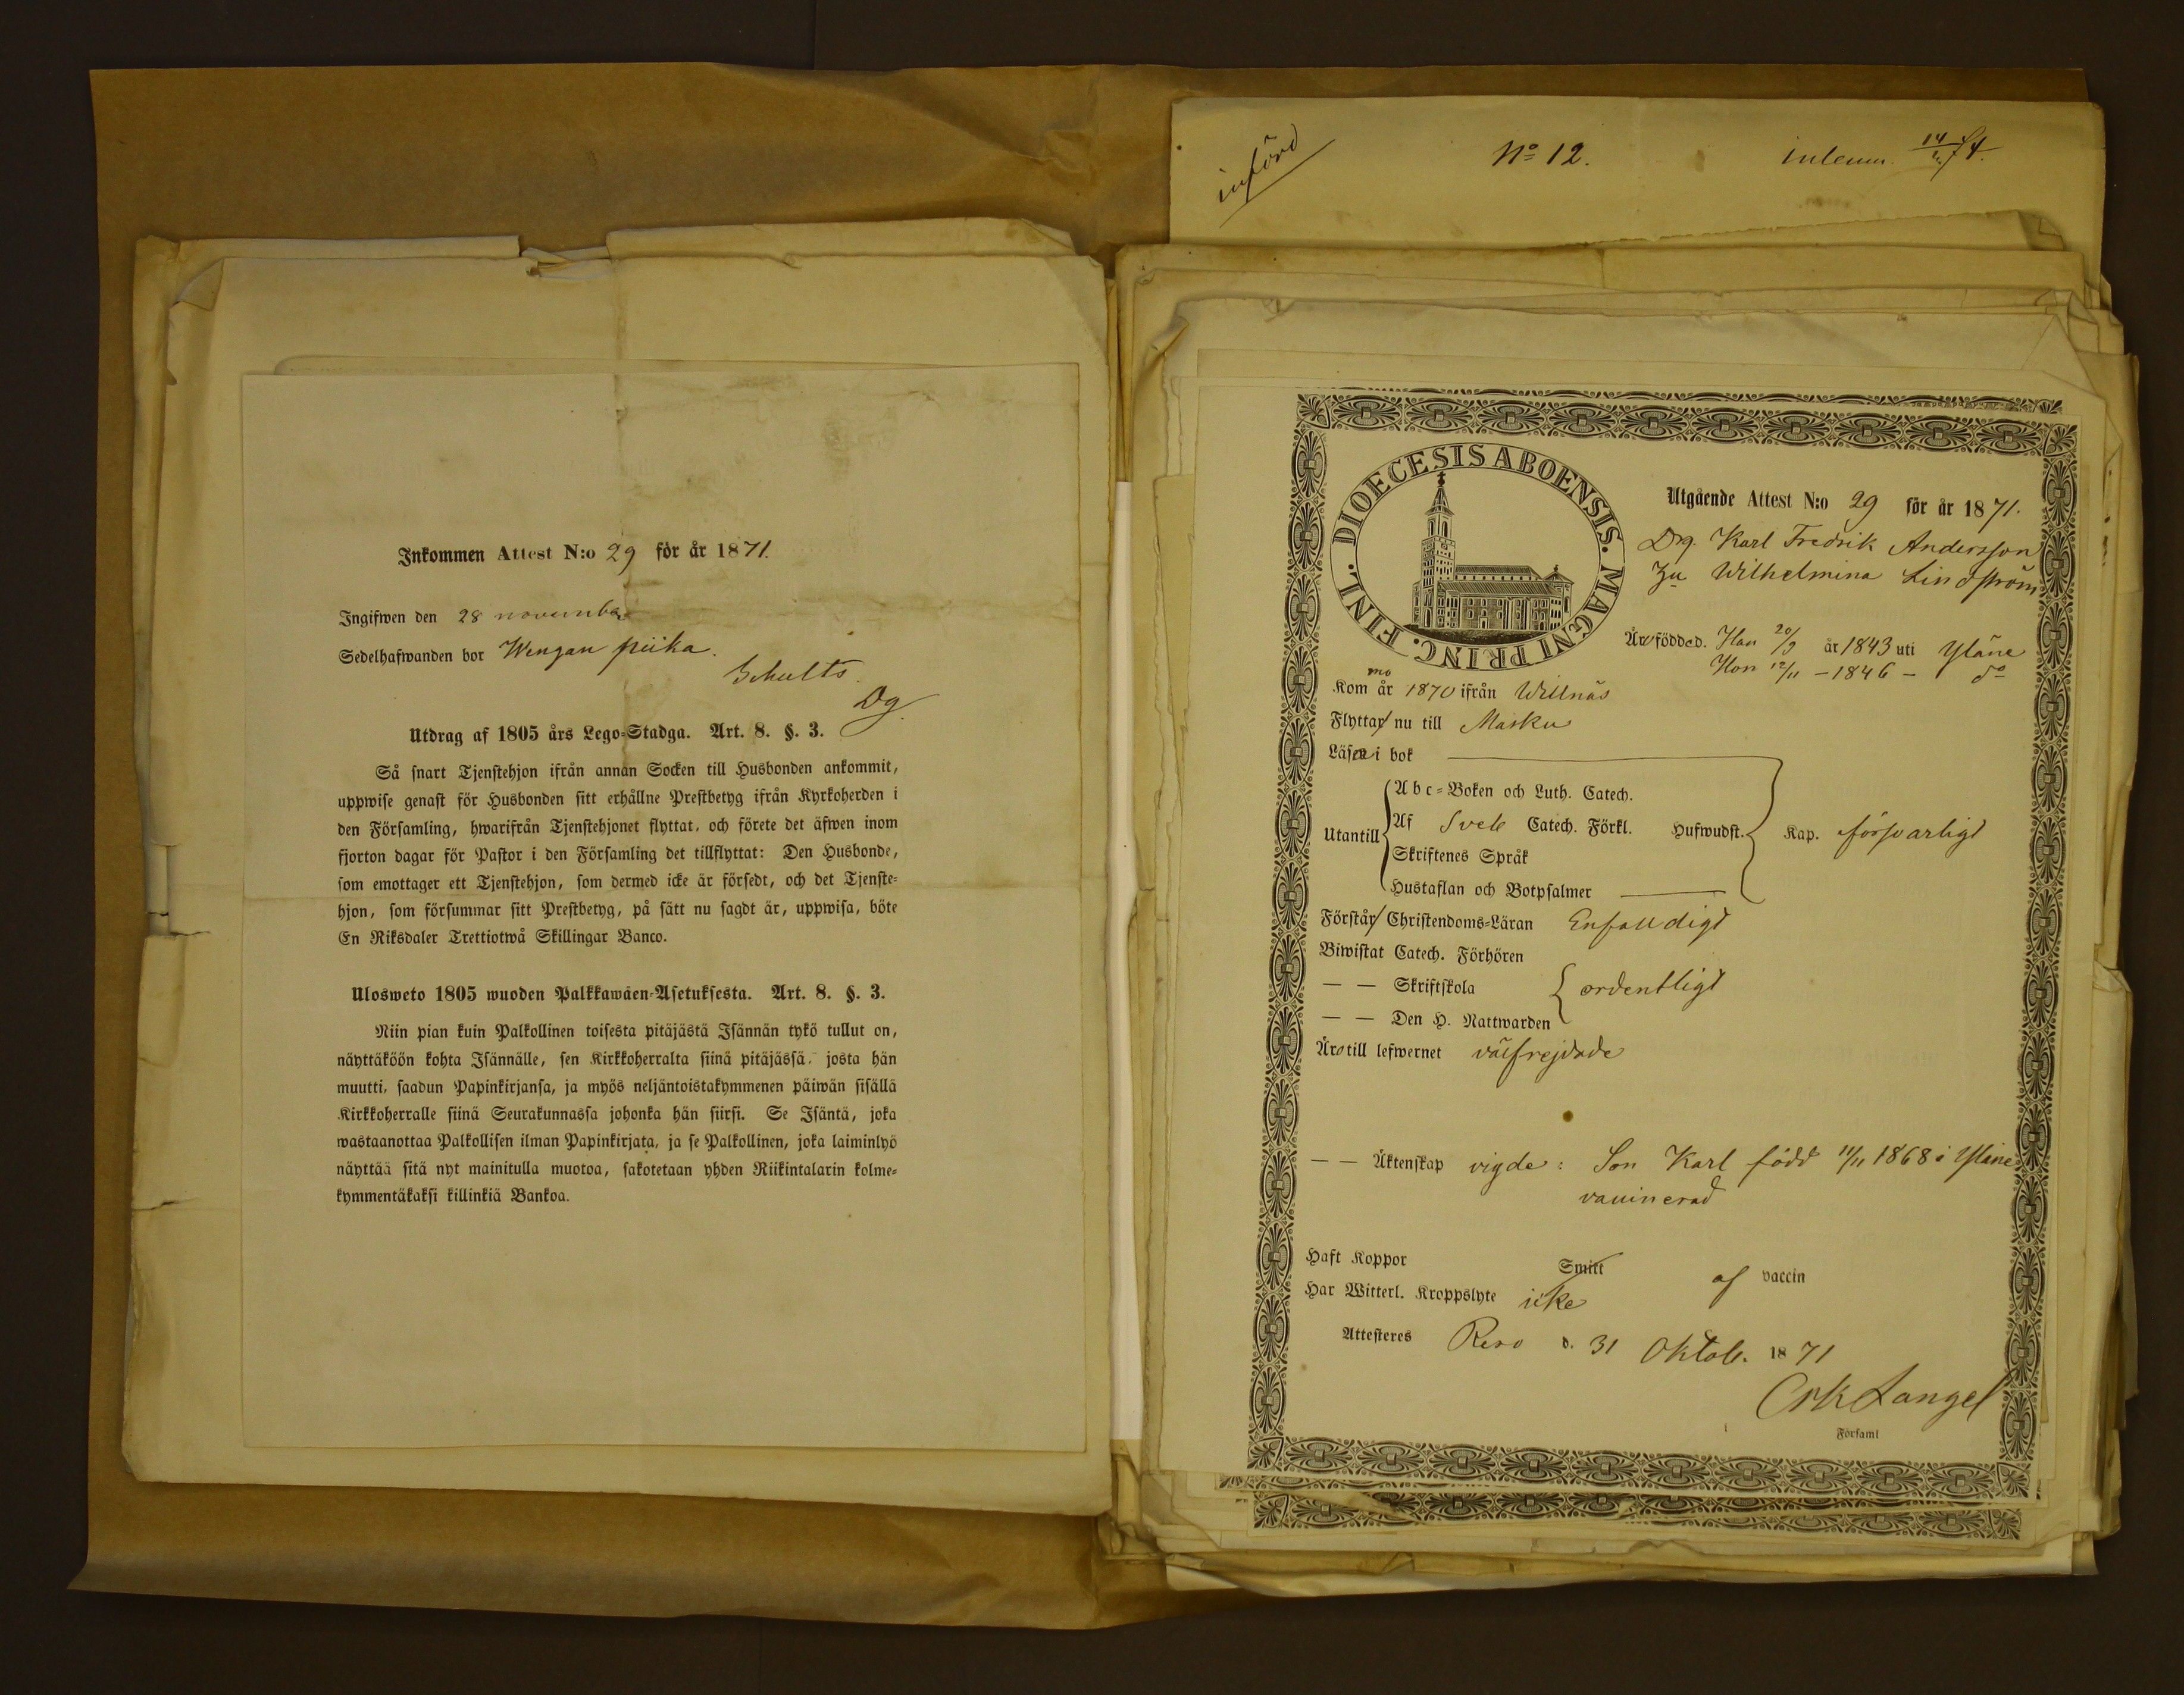 Inkommen Attest N:o 29 för år 1871.
Ingifwen den 28 november
Sedelhafwanden bor Wengan piika.
Schults.
Dg.
Utdrag af 1805 års Lego-Stadga. Art. 8. §. 3.
Så snart Tjenstehjon ifrån annan Socken till Husbonden ankommit,
uppwise genast för Husbonden sitt erhållne Prestbetyg ifrån Kyrkoherden i
den Församling, hwarifrån Tjenstehjonet flyttat, och förete det äfwen inom
fjorton dagar för Pastor i den Församling det tillflyttat: Den Husbonde,
som emottager ett Tjenstehjon, som dermed icke är försedt, och det Tjenste-
hjon, som försummar sitt Prestbetyg, på sätt nu sagdt är, uppwisa, böte
En Riksdaler Trettiotwå Skillingar Banco.
Ulosweto 1805 wuoden Palkkawäen-Asetuksesta. Art. 8. §. 3.
Niin pian kuin Palkollinen toisesta pitäjästä Isännän tykö tullut on,
näyttäköön kohta Isännälle, sen Kirkkoherralta siinä pitäjässä, josta hän
muutti, saadun Papinkirjansa, ja myös neljäntoistakymmenen päiwän sisällä
Kirkkoherralle siinä Seurakunnassa johonka hän siirsi. Se Isäntä, joka
wastaanottaa Palkollisen ilman Papinkirjata, ja se Palkollinen, joka laiminlyö
näyttää sitä nyt mainitulla muotoa, sakotetaan yhden Riikintalarin kolme-
kymmentäkaksi killinkiä Bankoa.
införd
No 12.
inlemn. 14/74.
DIOECESIS ABOENSIS. MAGNI PRINC. FINL.
Utgående Attest N:o 29 för år 1871.
Drg. Karl Fredrik Andersson
Hu Wilhelmina Lindström
Äro födde d. Han 20/9 år 1843 uti Yläne
Hon 12/11 - 1846 - do
Kommo år 1870 ifrån Willnäs
Flytta nu till Masku
Läsa i bok
Abc-Boken och Luth. Catech.
Utantill Af Sveb Catech. Förkl. Hufwudst. Kap. försvarligt
Skriftenes Språk
Hustaflan och Botpsalmer
Förstå Christendoms-Läran Enfalldigt
Biwistat Catech. Förhören
— — Skriftskola ordentligt
— — Den H. Nattwarden
Äro till lefwernet välfrejdade
— — Äktenskap vigde: Son Karl född 11/11 1868 i Yläne
vaccinerad
Haft Koppor Smitt af vaccin
Har Witterl. Kroppslyte icke
Attesteres Reso d. 31 Oktob. 1871
Langel
Församl